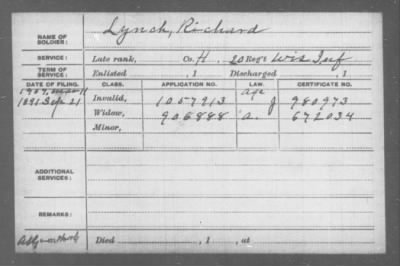 NAME OF SOLDIER: Lynch, Richard
SERVICE: Late rank, Co. H, 20 Reg't Wis Inf
TERM OF SERVICE: Enlisted , 1 Discharged , 1
DATE OF FILING. CLASS. APPLICATION NO. LAW. CERTIFICATE NO.
1907, Mar 11 age
1891 Sep 21 Invalid, 1057913 J 980973
Widow, 906888 a. 672034
Minor,
ADDITIONAL SERVICES:
REMARKS:
Died , 1 , at